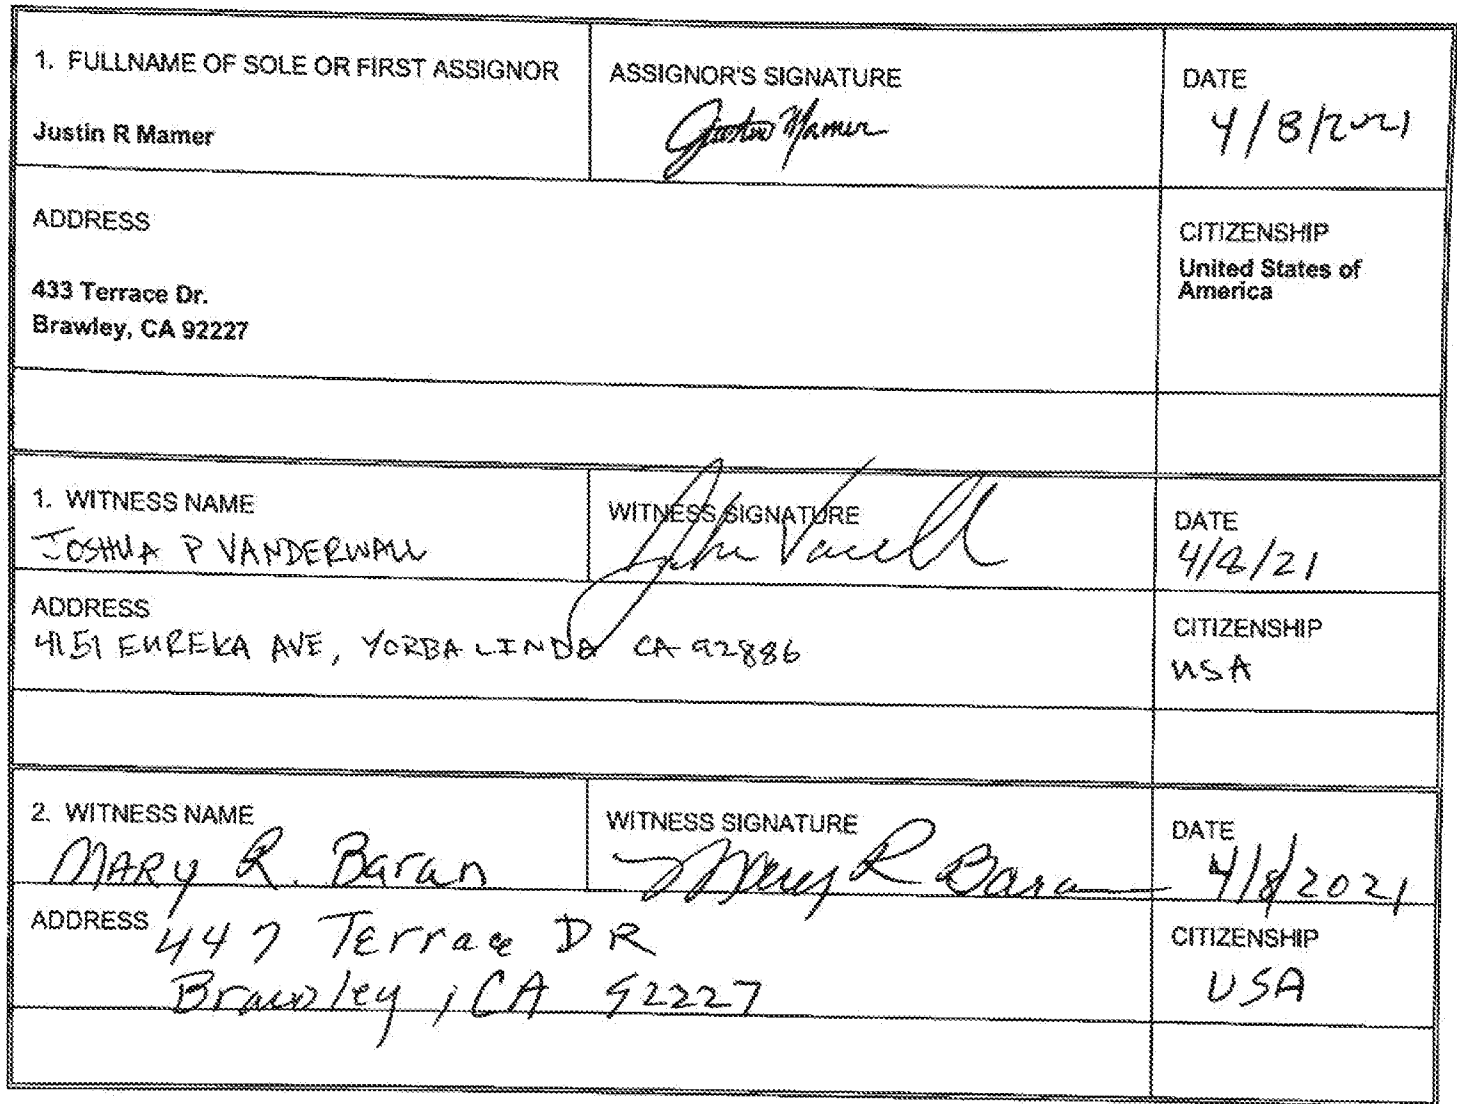 1. FULLNAME OF SOLE OR FIRST ASSIGNOR
Justin R Mamer
ASSIGNOR'S SIGNATURE
Justin Mamer
DATE
4/8/2021
ADDRESS
433 Terrace Dr.
Brawley, CA 92227
CITIZENSHIP
United States of
America
1. WITNESS NAME
JOSHUA P VANDERWALL
WITNESS SIGNATURE
DATE
4/8/21
ADDRESS
4151 EUREKA AVE, YORBA LINDA CA 92886
CITIZENSHIP
USA
2. WITNESS NAME
MARY R. Baran
WITNESS SIGNATURE
Mary R Baran
DATE
4/8/2021
ADDRESS
447 Terrace DR
Brawley, CA 92227
CITIZENSHIP
USA